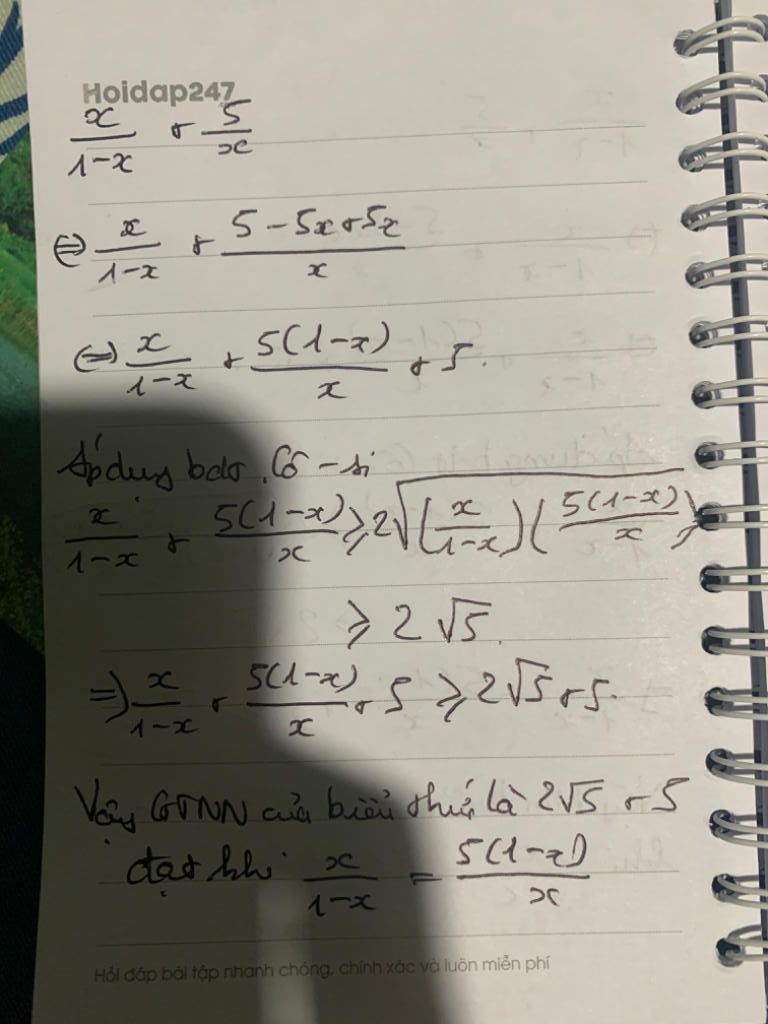 Hoidap247
x/(1-x) + 5/x
⇔ x/(1-x) + (5-5x+5x)/x
⇔ x/(1-x) + 5(1-x)/x + 5.
Áp dụng bđt Cô-si
x/(1-x) + 5(1-x)/x ⩾ 2√((x/(1-x))(5(1-x)/x))
⩾ 2√5.
⇒ x/(1-x) + 5(1-x)/x + 5 ⩾ 2√5 + 5.
Vậy GTNN của biểu thức là 2√5 + 5
đạt khi x/(1-x) = 5(1-x)/x
Hỏi đáp bài tập nhanh chóng, chính xác và luôn miễn phí